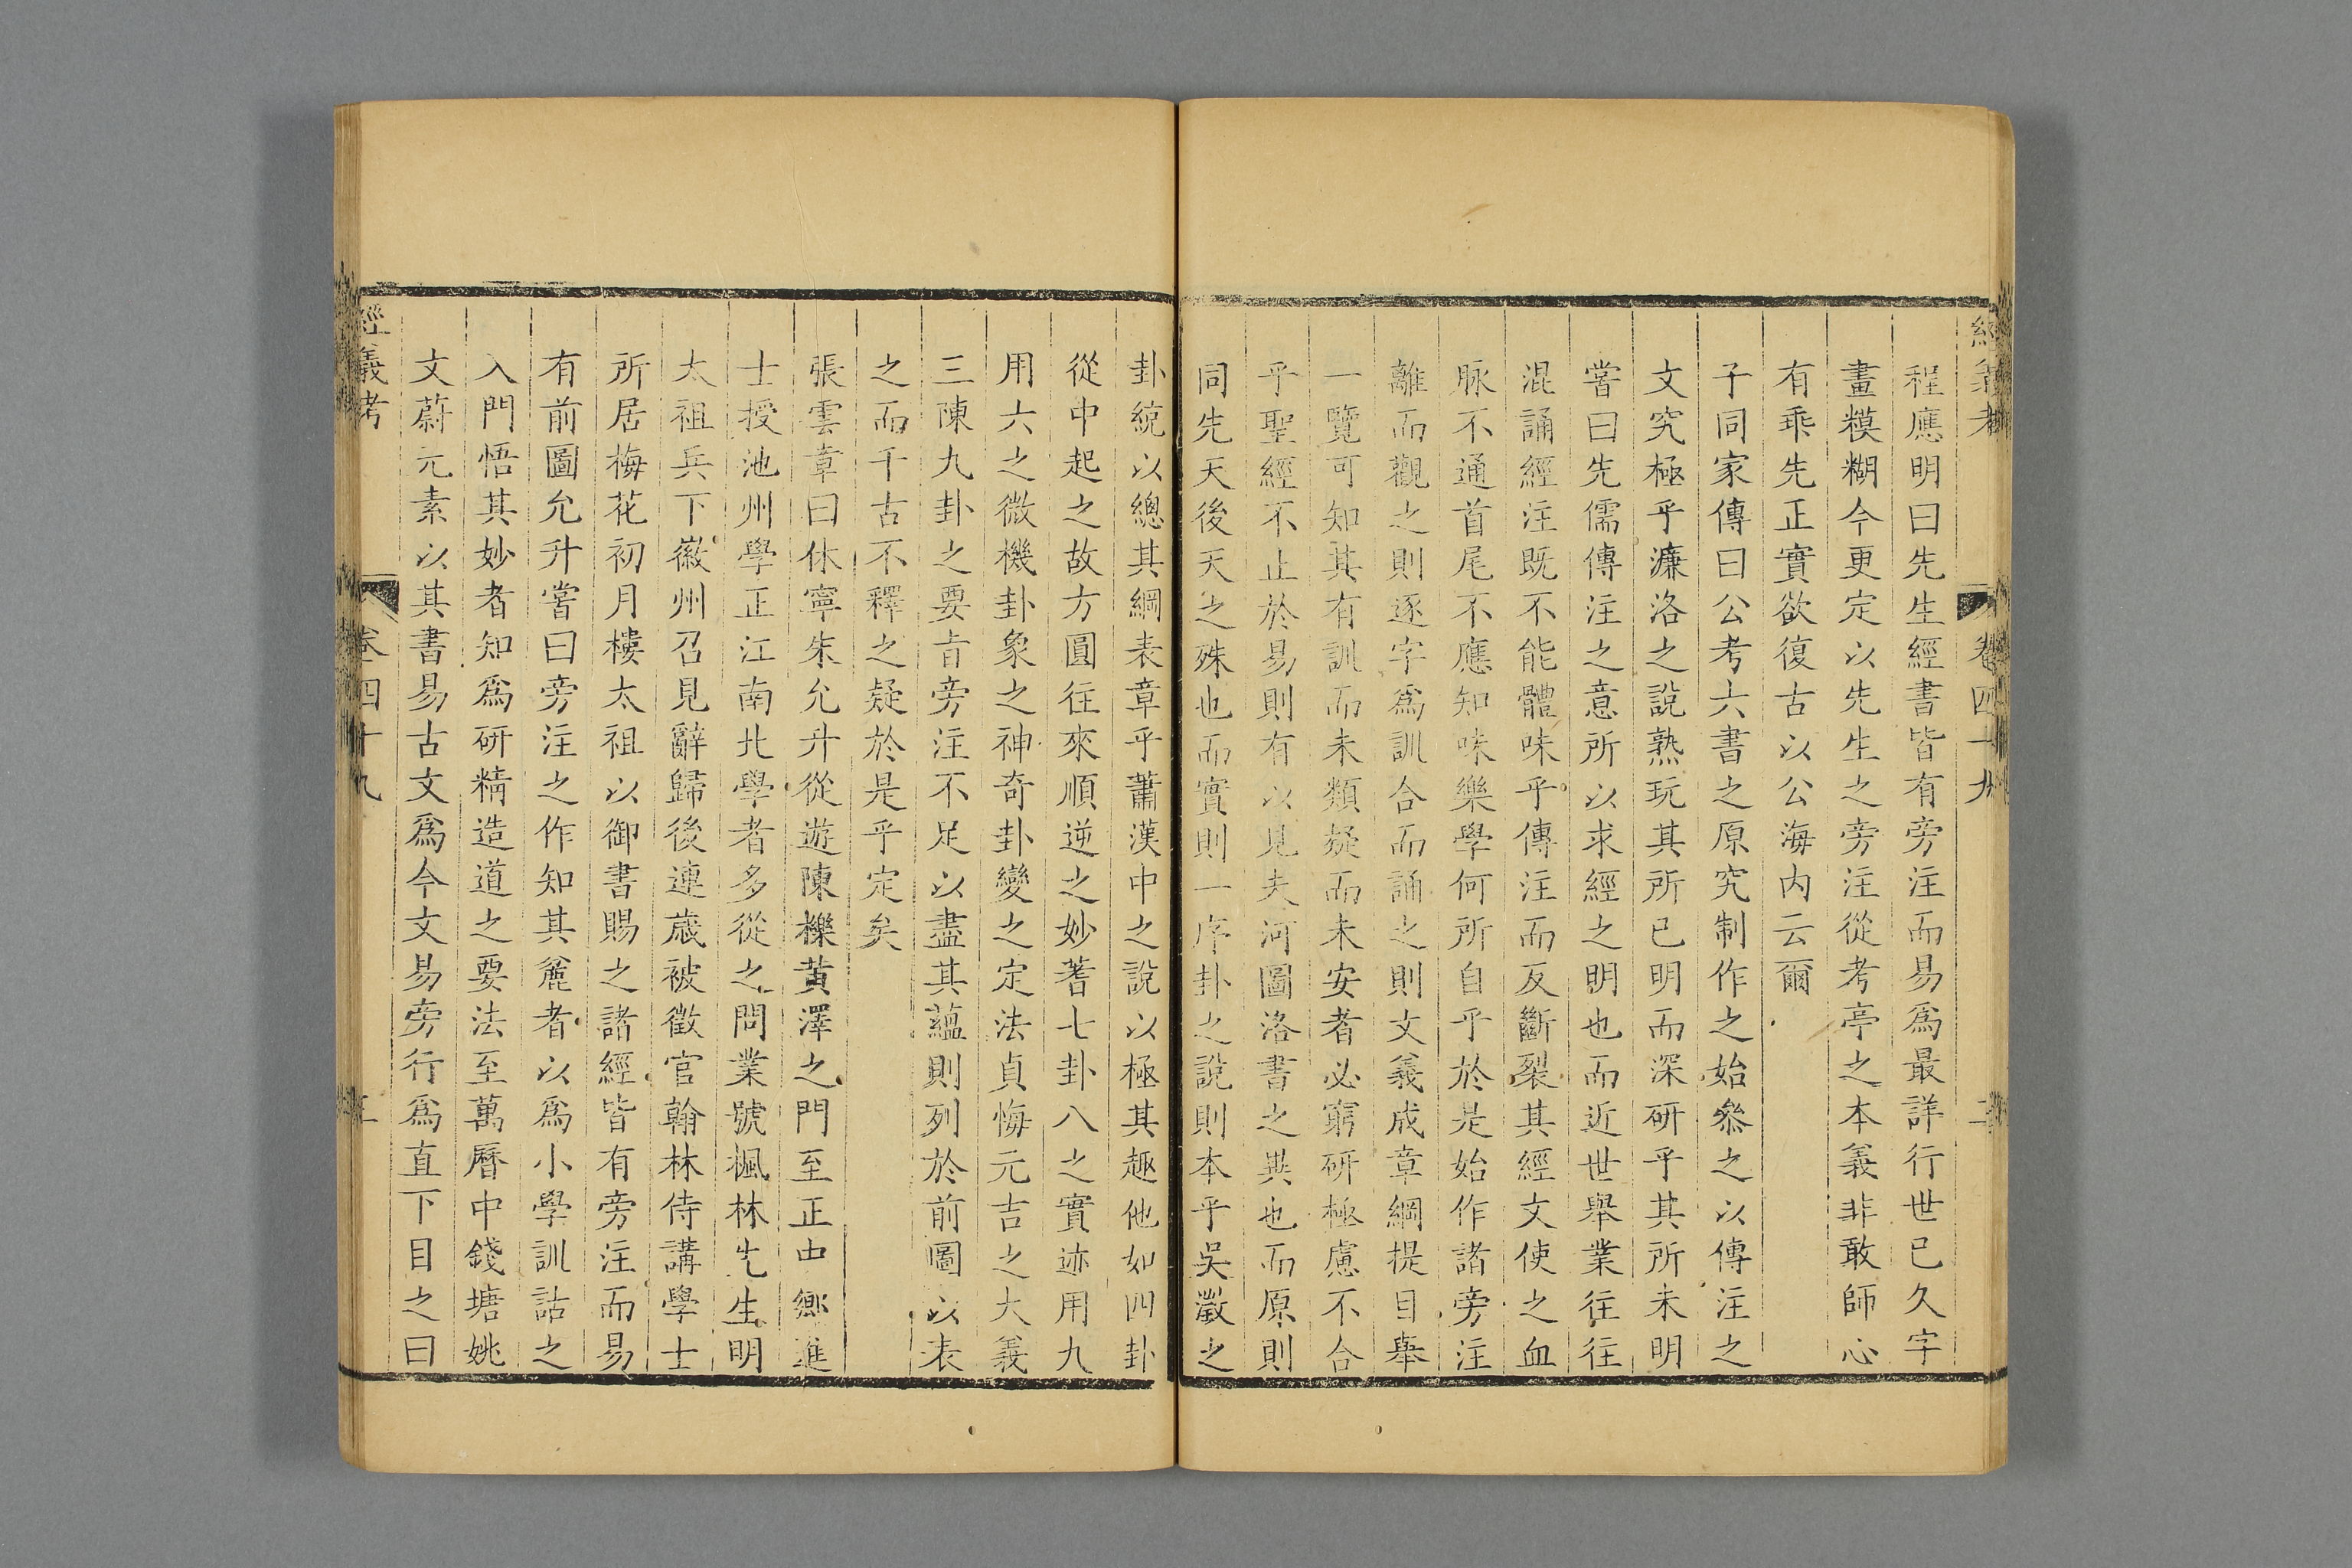 程應明曰先生經書皆有旁注而易爲最詳行世已久字
畫糢糊今更定以先生之旁注從考亭之本義非敢師心
有乖先正實欲復古以公海内云爾
子同家傳曰公考六書之原究制作之始叅之以傳注之
文究極乎濂洛之說熟玩其所已明而深研乎其所未明
嘗曰先儒傳注之意所以求經之明也而近世舉業往往
混誦經注既不能體味乎傳注而反斷裂其經文使之血
脉不通首尾不應知味樂學何所自乎於是始作諸旁注
離而觀之則逐字爲訓合而誦之則文義成章綱提目舉
一覽可知其有訓而未類疑而未安者必窮研極慮不合
乎聖經不止於易則有以見夫河圖洛書之異也而原則
同先天後天之殊也而實則一序卦之說則本乎吳澂之
卦統以總其綱表章乎蕭漢中之說以極其趣他如四卦
從中起之故方圓往來順逆之妙蓍七卦八之實迹用九
用六之微機卦象之神奇卦變之定法貞悔元吉之大義
三陳九卦之要旨旁注不足以盡其蘊則列於前圖以表
之而千古不釋之疑於是乎定矣
張雲章曰休寧朱允升從遊陳櫟黃澤之門至正中鄉進
士授池州學正江南北學者多從之問業號楓林先生明
太祖兵下徽州召見辭歸後連歲被徵官翰林侍講學士
所居梅花初月樓太祖以御書賜之諸經皆有旁注而易
有前圖允升嘗曰旁注之作知其麄者以爲小學訓詁之
入門悟其妙者知爲研精造道之要法至萬曆中錢塘姚
文蔚元素以其書易古文爲今文易旁行爲直下目之曰
經義考
卷四十九